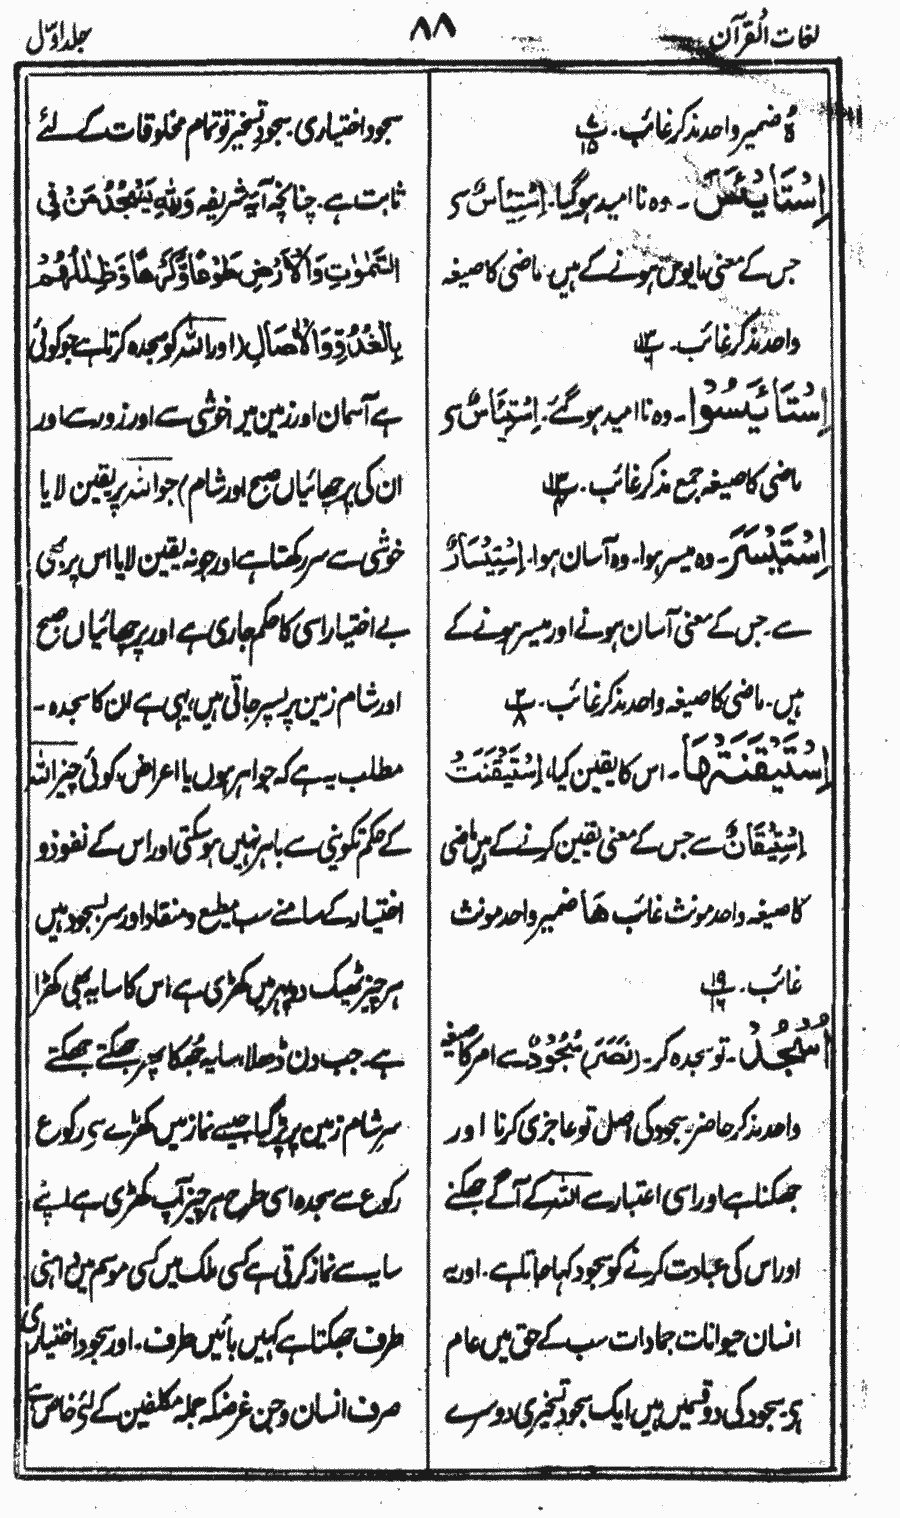 لغات القرآن
۸۸
جلد اوّل
ہٗ ضمیر واحد مذکر غائب۔ ۷/۱۵
اِسْتَایْئَسَ۔ وہ نا امید ہو گیا۔ اِسْتِیْئَاسٌ سے
جس کے معنی مایوس ہونے کے ہیں۔ ماضی کا صیغہ
واحد مذکر غائب۔
اِسْتَایْئَسُوْا۔ وہ نا امید ہو گئے۔ اِسْتِیْئَاسٌ سے
ماضی کا صیغہ جمع مذکر غائب۔
اِسْتَیْسَرَ۔ وہ میسر ہوا۔ وہ آسان ہوا۔ اِسْتِیْسَارٌ
سے۔ جس کے معنی آسان ہونے اور میسر ہونے کے
ہیں۔ ماضی کا صیغہ واحد مذکر غائب۔ ۲/۸
اِسْتَیْقَنَتْھَا۔ اس کا یقین کیا، اِسْتَیْقَنَتْ
اِسْتِیْقَانٌ سے جس کے معنی یقین کرنے کے ہیں ماضی
کا صیغہ واحد مونث غائب ھَا ضمیر واحد مونث
غائب۔ ۱۹/۱۶
اُسْجُدْ۔ تو سجدہ کر۔ (نَصَرَ) سُجُوْدٌ سے امر کا صیغہ
واحد مذکر حاضر۔ سجود کی اصل تو عاجزی کرنا اور
جھکنا ہے اور اسی اعتبار سے اللہ کے آگے جھکنے
اور اس کی عبادت کرنے کو سجود کہا جاتا ہے۔ اور یہ
انسان حیوانات جمادات سب کے حق میں عام
ہے۔ سجود کی دو قسمیں ہیں ایک سجود تسخیری دوسرے
سجود اختیاری۔ سجود تسخیر تو تمام مخلوقات کے لئے
ثابت ہے۔ چنانچہ آیہ شریفہ وَلِلّٰهِ یَسْجُدُ مَنْ فِی
السَّمٰوٰتِ وَالْاَرْضِ طَوْعًا وَّکَرْهًا وَّظِلٰلُهُمْ
بِالْغُدُوِّ وَالْاٰصَالِ (اور اللہ کو سجدہ کرتا ہے جو کوئی
ہے آسمان اور زمین میں خوشی سے اور زور سے اور
ان کی پرچھائیاں صبح اور شام) جو اللہ پر یقین لایا
خوشی سے سر رکھتا ہے اور جو نہ یقین لایا اس پر بھی
بے اختیار اسی کا حکم جاری ہے اور پرچھائیاں صبح
اور شام زمین پر پسر جاتی ہیں، یہی ہے ان کا سجدہ۔
مطلب یہ ہے کہ جواہر ہوں یا اعراض، کوئی چیز اللہ
کے حکم تکوینی سے باہر نہیں ہو سکتی اور اس کے نفوذ و
اختیار کے سامنے سب مطیع و منقاد اور سر بسجود ہیں
ہر چیز ٹھیک دوپہر میں کھڑی ہے اس کا سایہ بھی کھڑا
ہے۔ جب دن ڈھلا، سایہ جُھکا پھر جھکتے جھکتے
سرِ شام زمین پر پڑ گیا جیسے نماز میں کھڑے سے رکوع
رکوع سے سجدہ اسی طرح ہر چیز آپ کھڑی ہے اپنے
سایے سے نماز کرتی ہے کسی ملک میں کسی موسم میں داہنی
طرف جھکتا ہے کہیں بائیں طرف۔ اور سجود اختیاری
صرف انسان و جن غرضکہ جملہ مکلفین کے لئے خاص ہے